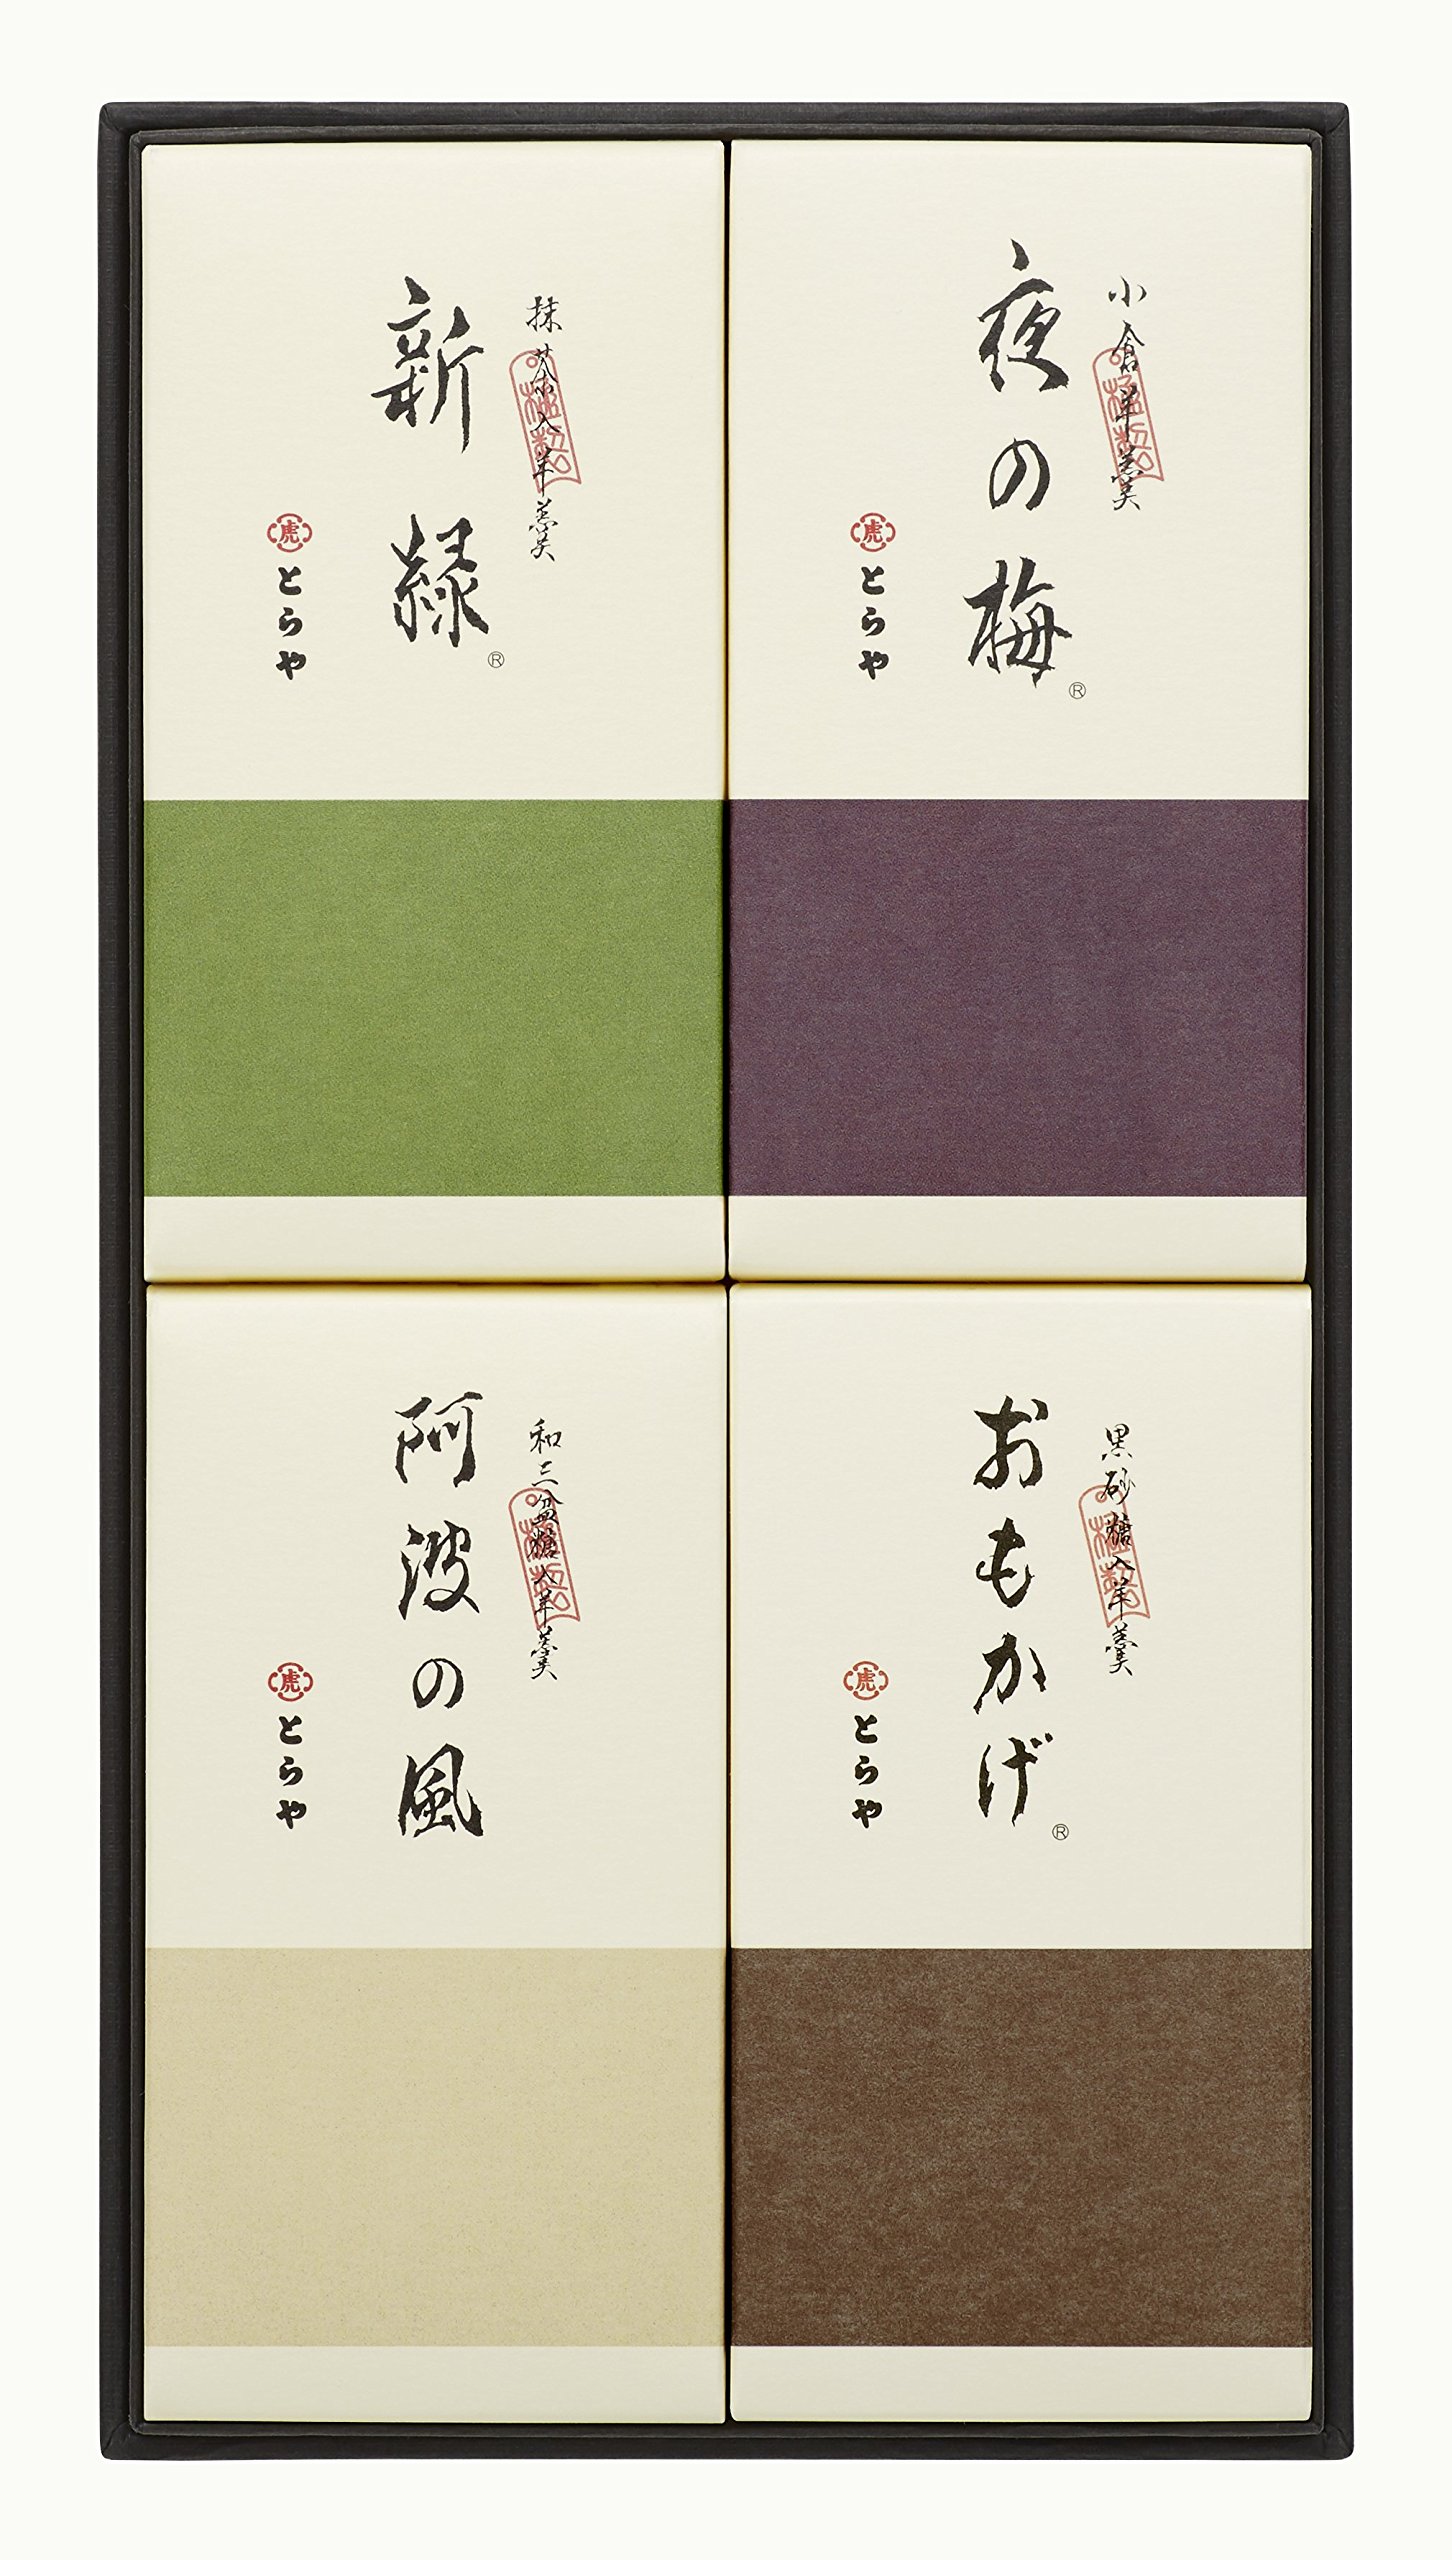 小倉羊羹
極製
夜の梅®
虎
とらや
抹茶入羊羹
極製
新緑®
虎
とらや
黒砂糖入羊羹
極製
おもかげ®
虎
とらや
和三盆糖入羊羹
極製
阿波の風
虎
とらや